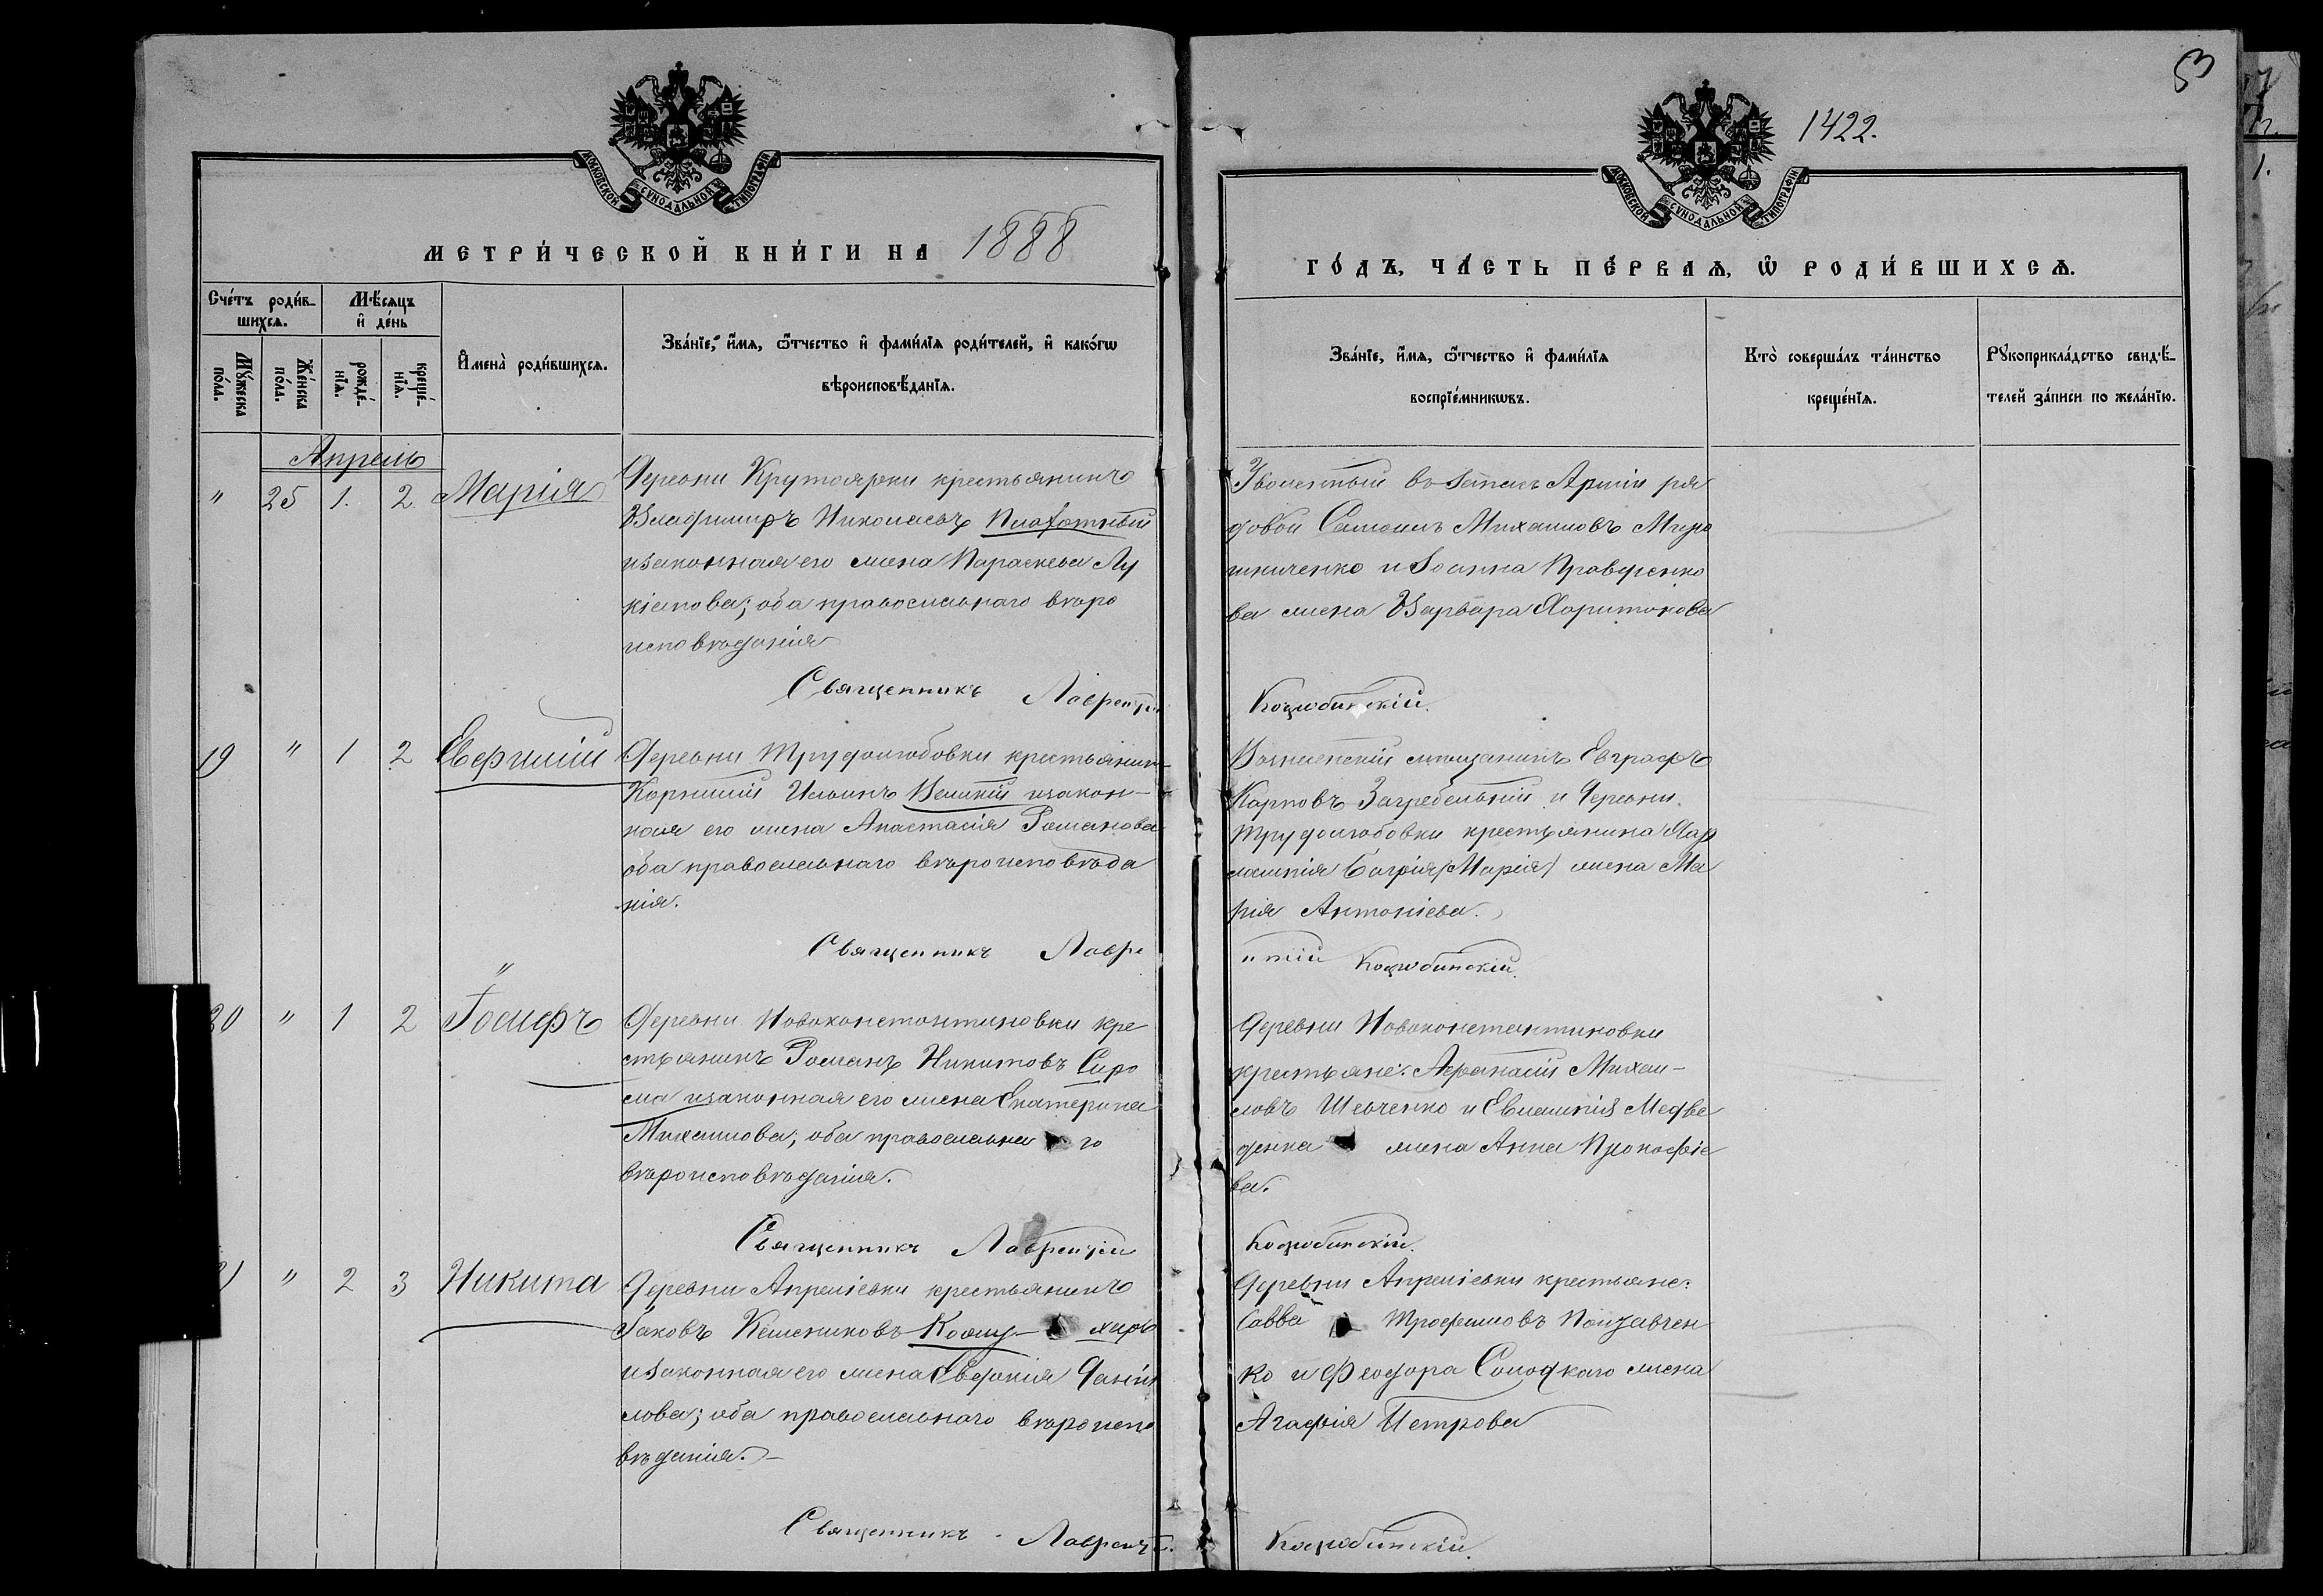 МОСКОВСКОЙ СУНОДАЛЬНОЙ ТИПОГРАФІИ
МЕТРИ́ЧЕСКОЙ КНИ́ГИ НА 1888
Сче́тъ роди́в-
шихсѧ.
Мѣ́сѧцъ
и҆ де́нь
Мꙋ́жеска
по́ла.
Же́нска
по́ла.
рожде́-
нїѧ.
креще́-
нїѧ.
И҆мена̀ роди́вшихсѧ.
Зва́нїе, и҆́мѧ, ѻ҆́тчество и҆ фами́лїѧ роди́телей, и҆ како́гѡ
вѣроисповѣ́данїѧ.
Апрель
" 25 1. 2 Марія
Деревни Крутоярки крестьянинъ
Владиміръ Николаевъ Плахотный
и законная его жена Параскева Лу
кіанова; оба православнаго вѣро
исповѣданія
Священникъ Лаврентій
19 " 1 2 Евфимій
Деревни Трудолюбовки крестьянин-
Корнилій Ильинъ Великій и закон-
ная его жена Анастасія Романова
оба православнаго вѣроисповѣда
нія.
Священникъ Лавре
20 " 1 2 Іосифъ
Деревни Новоконстантиновки кре
стьянинъ Романъ Никитовъ Сиро
ма и законная его жена Екатерина
Михаилова; оба православна го
вѣроисповѣданія.
Священникъ Лаврентій
" 2 3 Никита
Деревни Апреліевки крестьянинъ
Іаковъ
и законная его жена Евдокія Даніи
лова; оба православнаго вѣроиспо
вѣданія.-
Священникъ Лаврентій
53
1422.
МОСКОВСКОЙ СУНОДАЛЬНОЙ ТИПОГРАФІИ
ГО́ДЪ, ЧА́СТЬ ПЕ́РВАѦ, Ѡ҆ РОДИ́ВШИХСѦ.
Зва́нїе, и҆́мѧ, ѻ҆́тчество и҆ фами́лїѧ
воспрїе́мникѡвъ.
Кто̀ соверша́лъ та́инство
креще́нїѧ.
Рꙋкоприкла́дство свидѣ́-
телей за́писи по жела́нїю.
Уволенный въ запасъ Арміи ря
довой Самоилъ Михаиловъ Миро
шниченко и Іоанна Правдренко
ва жена Варвара Харитонова
Коцюбинскій.
Вознесенскій мѣщанинъ Евграфъ
Карповъ Загребельній и Деревни
Трудолюбовки крестьянина Хар
лампія Багрія (Марія) жена Ма
рія Антоніева.
нтій Коцюбинскій.
Деревни Новоконстантиновки
крестьяне: Афанасій Михаи-
ловъ Шевченко и Евлампія Медве
денка жена Анна Прокофіе
ва.
Коцюбинскій.
Деревни Апреліевки крестьяне:
Савва Трофимовъ
ко и Феодора Солодкаго жена
Агафія Петрова
Коцюбинскій.